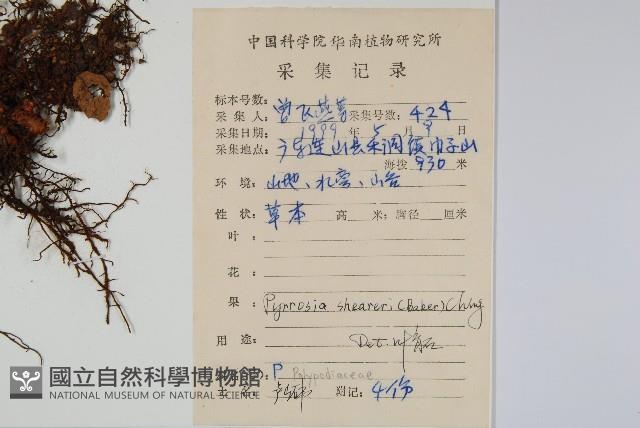 中国科学院华南植物研究所
采集记录
标本号数:
采集人: 曾飞燕等 采集号数: 424
采集日期: 1999 年 5 月 9 日
采集地点: 广东连山县禾洞镇巾子山
海拨 930 米
环境: 山地、水旁、山谷
性状: 草本 高 米; 胸径 厘米
叶:
花:
果: Pyrrosia sheareri (Baker) Ching
用途: Det. 叶育石
P Polypodiaceae
附记: 4份
國立自然科學博物館
NATIONAL MUSEUM OF NATURAL SCIENCE